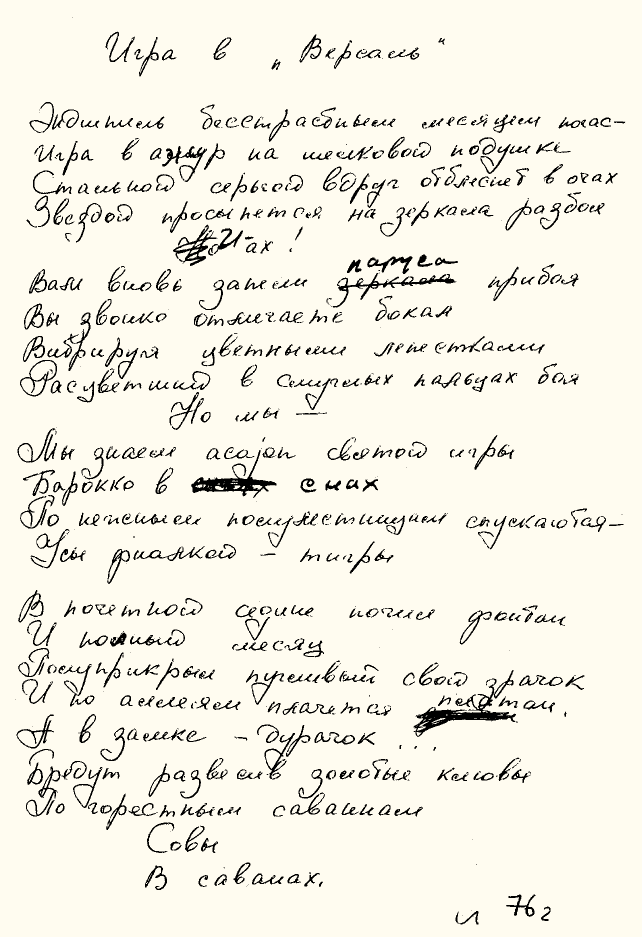 Игра в „Версаль"
бесстрастным месяцем погас-
Игра в ажур на шелковой подушке
Стальной серьгой вдруг отблеснет в очах
Звездой проснется на зеркала разбои
И-ах!
Вам вновь запели паруса прибоя
Вы звонко отмичаете бокал
Вибрируя цветными лепестками
Расцветший в смуглых пальцах боя
Но мы —
Мы знаем святой игры
Барокко в снах
По нежным полулестницам спускаются—
Усы фиалкой – тигры
В почетной седине почил фонтан
И полный месяц
Полуприкрыл пугливый свой зрачок
И по аллеям плачется
А в замке – дурачок ...
Бредут развесив золотые клювы
По горестным саваннам
Совы
В саванах.
76 г